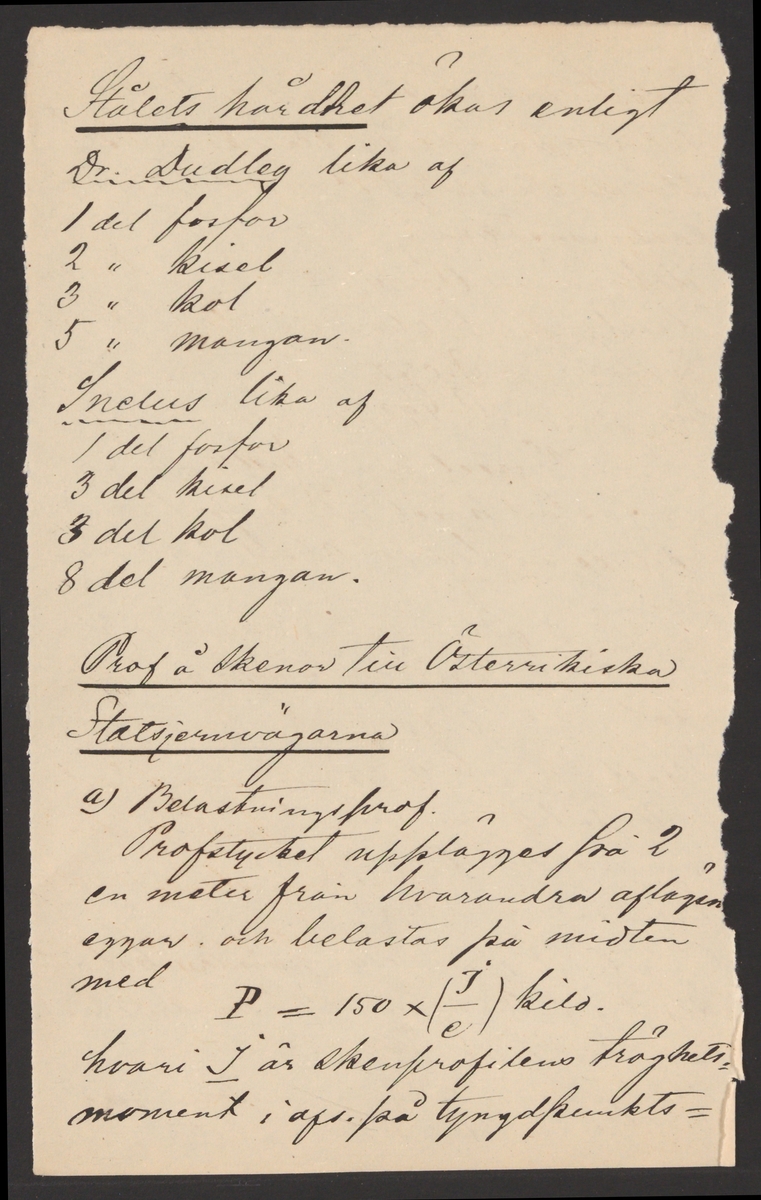 Stålets hårdhet ökas enligt
Dr. Dudley lika af
1 del fosfor
2 " kisel
3 " kol
5 " mangan.
Snelus lika af
1 del fosfor
3 del kisel
3 del kol
8 del mangan.
Prof å skenor till Österrikiska
Statsjernvägarna
a) Belastningsprof.
Profstycket upplägges på 2
en meter från hvarandra aflägsn
eggar. och belastas på midten
med
P = 150 × (J/e) kilo.
hvari J är skenprofilens tröghets=
moment i afs. på tyngdpunkts=